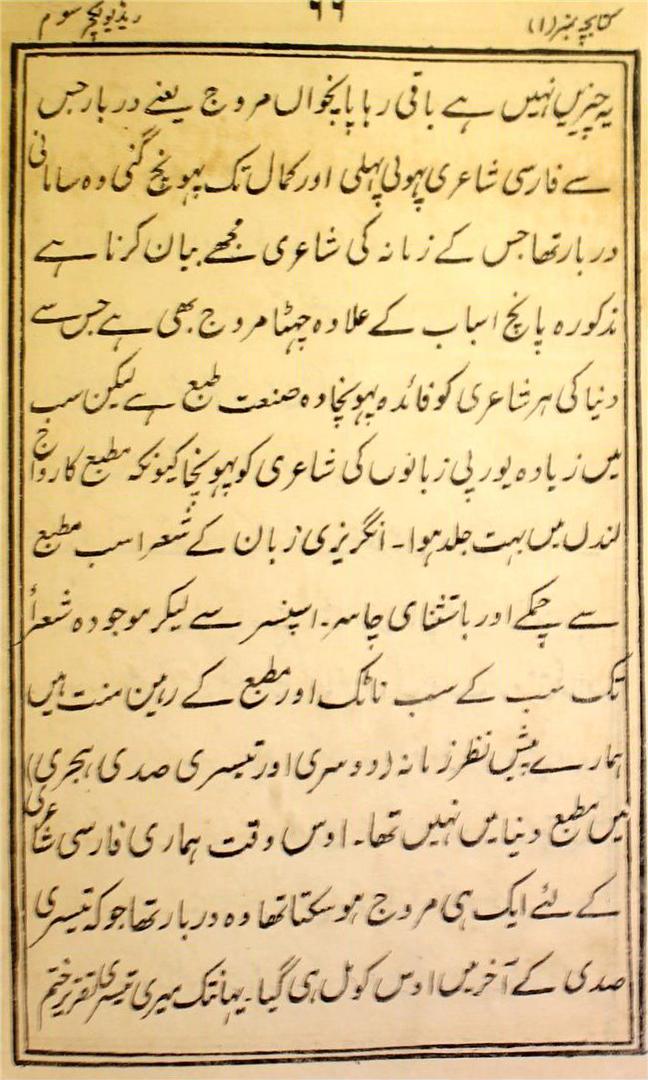 کتابچہ نمبر (۱)
۶۶
ریڈیو لکچر سوم
یہ چیزیں نہیں ہے باقی رہا پانچواں مروج یعنے دربار جس
سے فارسی شاعری پہولی پہلی اور کمال تک پہونچ گئی وہ سامانی
دربار تھا جس کے زمانہ کی شاعری مجھے بیان کرنا ہے
مذکورہ پانچ اسباب کے علاوہ چہٹا مروج بھی ہے جس سے
دنیا کی ہر شاعری کو فائدہ پہونچا وہ صنعت طبع ہے لیکن سب
میں زیادہ یورپی زبانوں کی شاعری کو پہونچا کیونکہ مطبع کا رواج
لندں میں بہت جلد ہوا۔ انگریزی زبان کے شعرا سب مطبع
سے چمکے اور باستثنای چاسر۔ اسپنسر سے لیکر موجودہ شعرأ
تک سب کے سب ناٹک اور مطبع کے رہین منت ہیں
ہمارے پیش نظر زمانہ (دوسری اور تیسری صدی ہجری)
میں مطبع دنیا میں نہیں تھا۔ اوس وقت ہماری فارسی شاعری
کے لئے ایک ہی مروج ہو سکتا تھا وہ دربار تھا جو کہ تیسری
صدی کے آخر میں اوس کو مل ہی گیا۔ یہانتک میری تیسری تقریر ختم